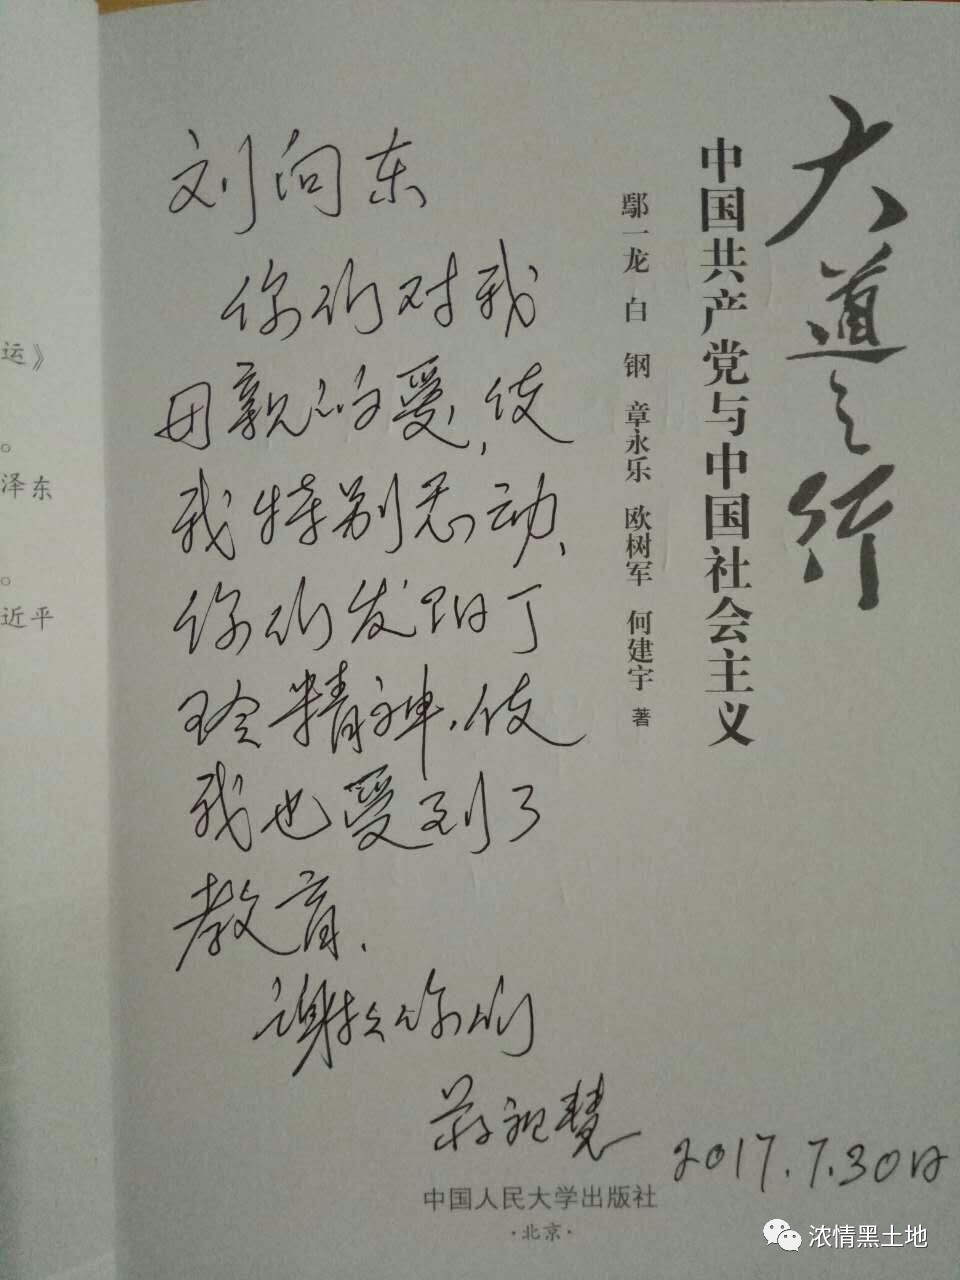 大道之行
中国共产党与中国社会主义
鄢一龙 白 钢 章永乐 欧树军 何建宇 著
刘向东
你们对我
用亲人的爱,使
我特别感动、
你们发阳丁
玲精神,使
我也受到了
教育.
谢谢你们
蒋祖慧
2017.7.30日
中国人民大学出版社
·北京·
运》
。
泽东
。
近平
浓情黑土地